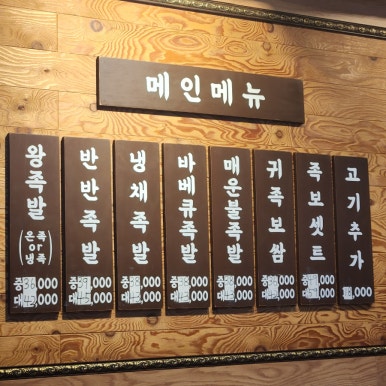 메인메뉴
왕족발
(온족
or
냉족)
중 ,000
대 ,000
반반족발
중 ,000
대 ,000
냉채족발
중 ,000
대 ,000
바베큐족발
중 ,000
대 ,000
매운불족발
중 ,000
대 ,000
귀족보쌈
중 ,000
대 ,000
족보셋트
중 ,000
대 ,000
고기추가
,000